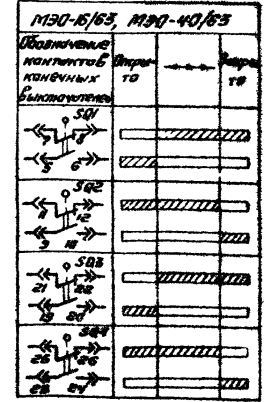 МЭО-16/63, МЭО-40/63
Обозначение
контактов
конечных
выключателей
Откры-
то
Закры-
то
SQ1
7 8
5 6
SQ2
11 12
9 10
SQ3
21 22
19 20
SQ4
25 26
23 24